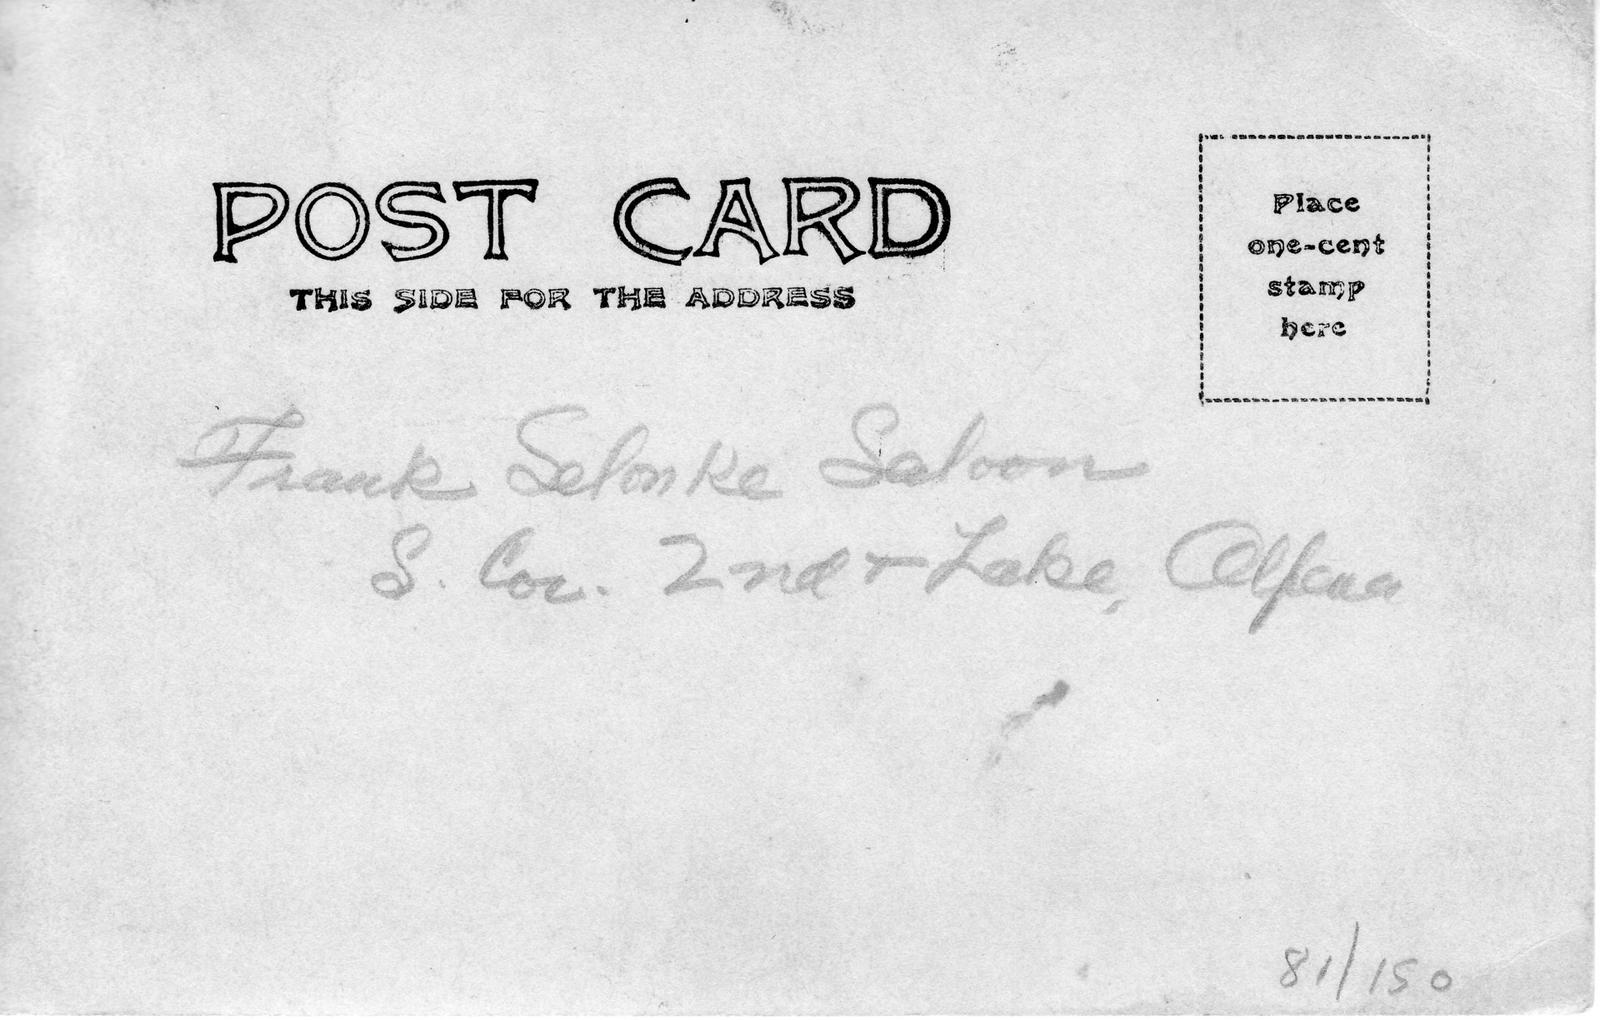 POST CARD
THIS SIDE FOR THE ADDRESS
Place
one-cent
stamp
here
Frank Selonke Saloon
S. Cor. 2nd + Lake, Alpena
81/150